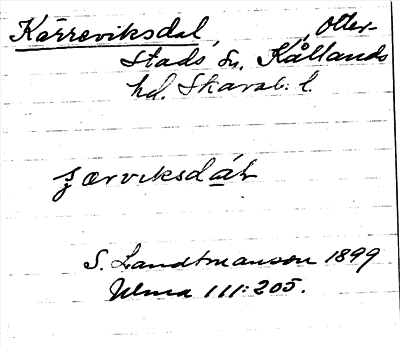 Kärreviksdal, , Otter-
Stads sn, Kållands
hd. Skarab: l.
ʒærviksdáɫ
S. Landtmanson 1899
Ulma 111:205.